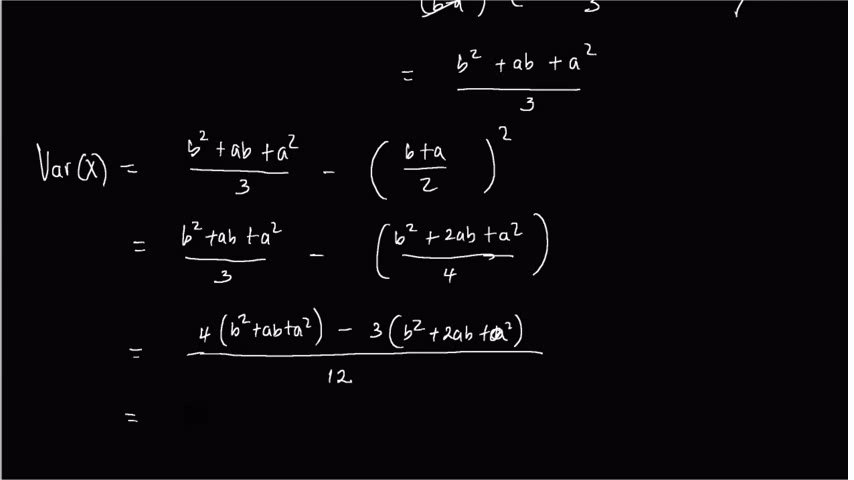 = b² + ab + a² / 3
Var(X) = b² + ab + a² / 3 - ( b + a / 2 )²
= b² + ab + a² / 3 - ( b² + 2ab + a² / 4 )
= 4 ( b² + ab + a² ) - 3 ( b² + 2ab + a² ) / 12
=